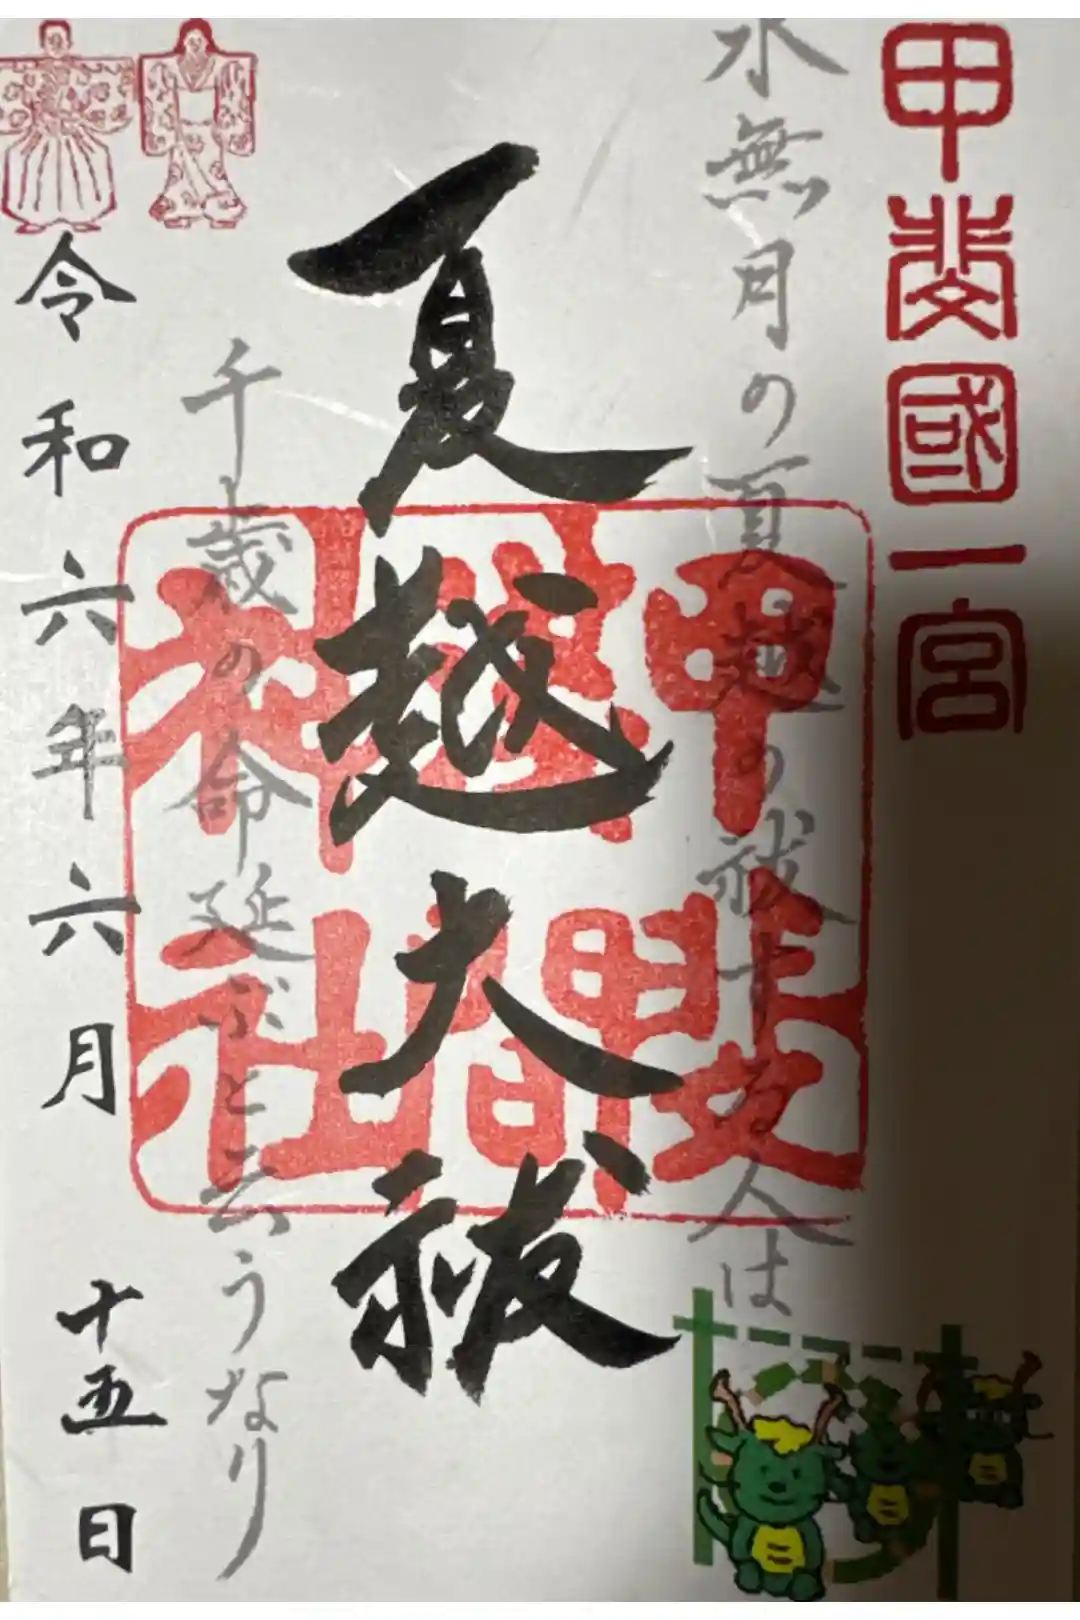 甲斐國一宮
水無月の夏越の祓する人は
夏越大祓
甲斐
淺間
神社
千歳の命延ぶと云うなり
令和六年六月十五日